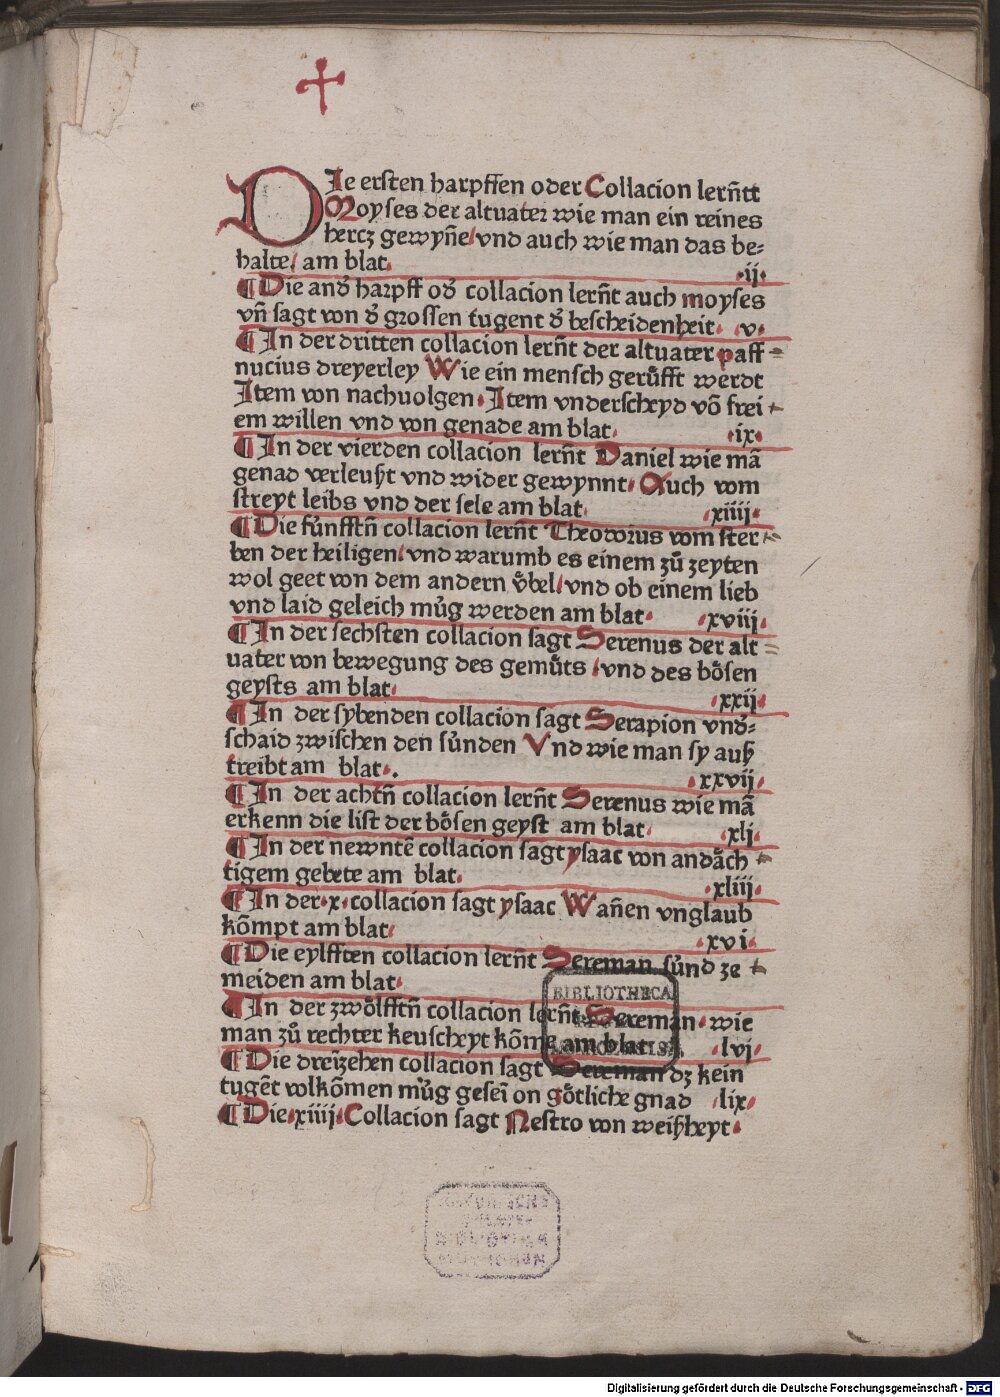 DIe ersten harpffen oder Collacion lern̄tt
Moyses der altuater wie man ein reines
hercz gewyn̄e/ vnd auch wie man das be⸗
halte/ am blat. .ij.
¶ Die and̕ harpff od̕ collacion lern̄t auch moyses
vn̄ sagt von d̕ grossen tugent d̕ bescheidenheit. .v.
¶ In der dritten collacion lern̄t der altuater paff⸗
nucius dreyerley Wie ein mensch gerůfft werdt
Item von nachuolgen. Item vnderscheyd vō frei
em willen vnd von genade am blat. .ix.
¶ In der vierden collacion lern̄t Daniel wie mā
genad verleußt vnd wider gewynnt. Auch vom
streyt leibs vnd der sele am blat. .xiiij.
¶ Die fůnfftn̄ collacion lern̄t Theodorus vom ster
ben der heiligen/ vnd warumb es einem zů zeyten
wol geet von dem andern v̈bel/ vnd ob einem lieb
vnd laid geleich můg werden am blat. .xviij.
¶ In der sechsten collacion sagt Serenus der alt
uater von bewegung des gemůts / vnd des bo̊sen
geysts am blat. .xxij.
¶ In der sybenden collacion sagt Serapion vnd̕⸗
schaid zwischen den sůnden Vnd wie man sy auß
treibt am blat. . .xxvij.
¶ In der achtn̄ collacion lern̄t Serenus wie mā
erkenn die list der bo̊sen geyst am blat. .xlj.
¶ In der newntē collacion sagt ysaac von andåch
tigem gebete am blat. .xliij.
¶ In der .x. collacion sagt ysaac Wan̄en vnglaub
kōmpt am blat. .xvi.
¶ Die eylfften collacion lern̄t Sereman sůnd ze
meiden am blat.
¶ In der zwo̊lfftn̄ collacion lern̄t Sereman. wie
man zů rechter keuscheyt kōme am blat .lvj.
¶ Die dreīzehen collacion sagt Sereman dz kein
tugēt volkōmen můg geseī on go̊tliche gnad .lix.
¶ Die .xiiij. Collacion sagt Nestro von weißheyt.
BIBLIOTHECA
Digitalisierung gefördert durch die Deutsche Forschungsgemeinschaft - DFG